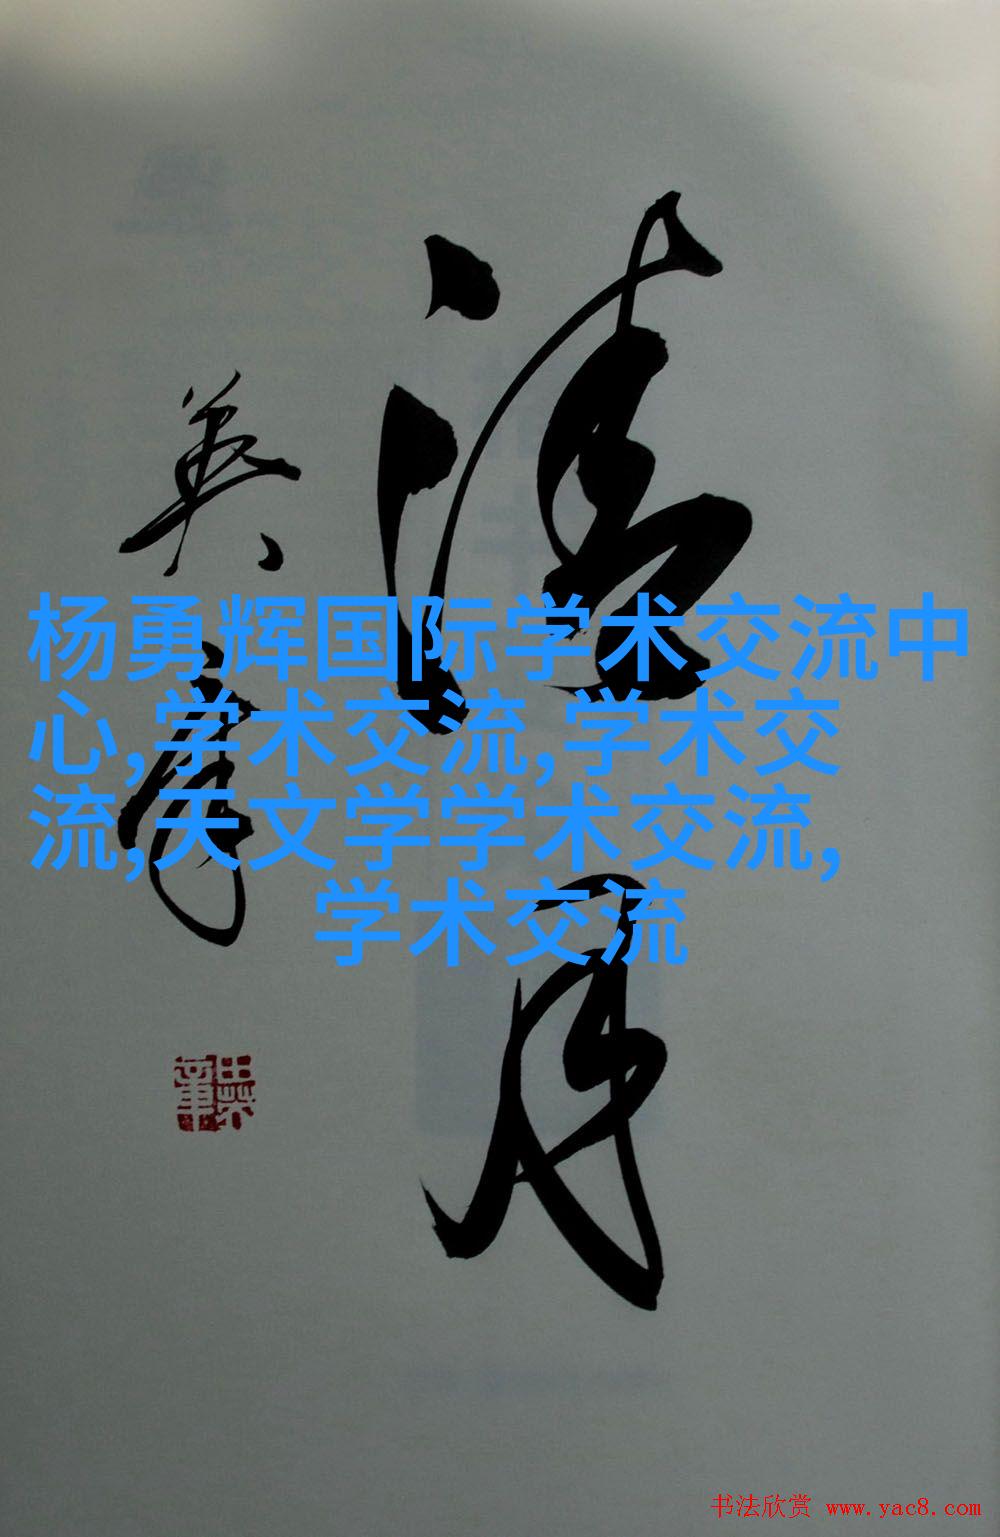 清月
英章
杨勇辉国际学术交流中
心,学术交流,学术交
流,天文学学术交流,
学术交流
书法欣赏 www.yac8.com